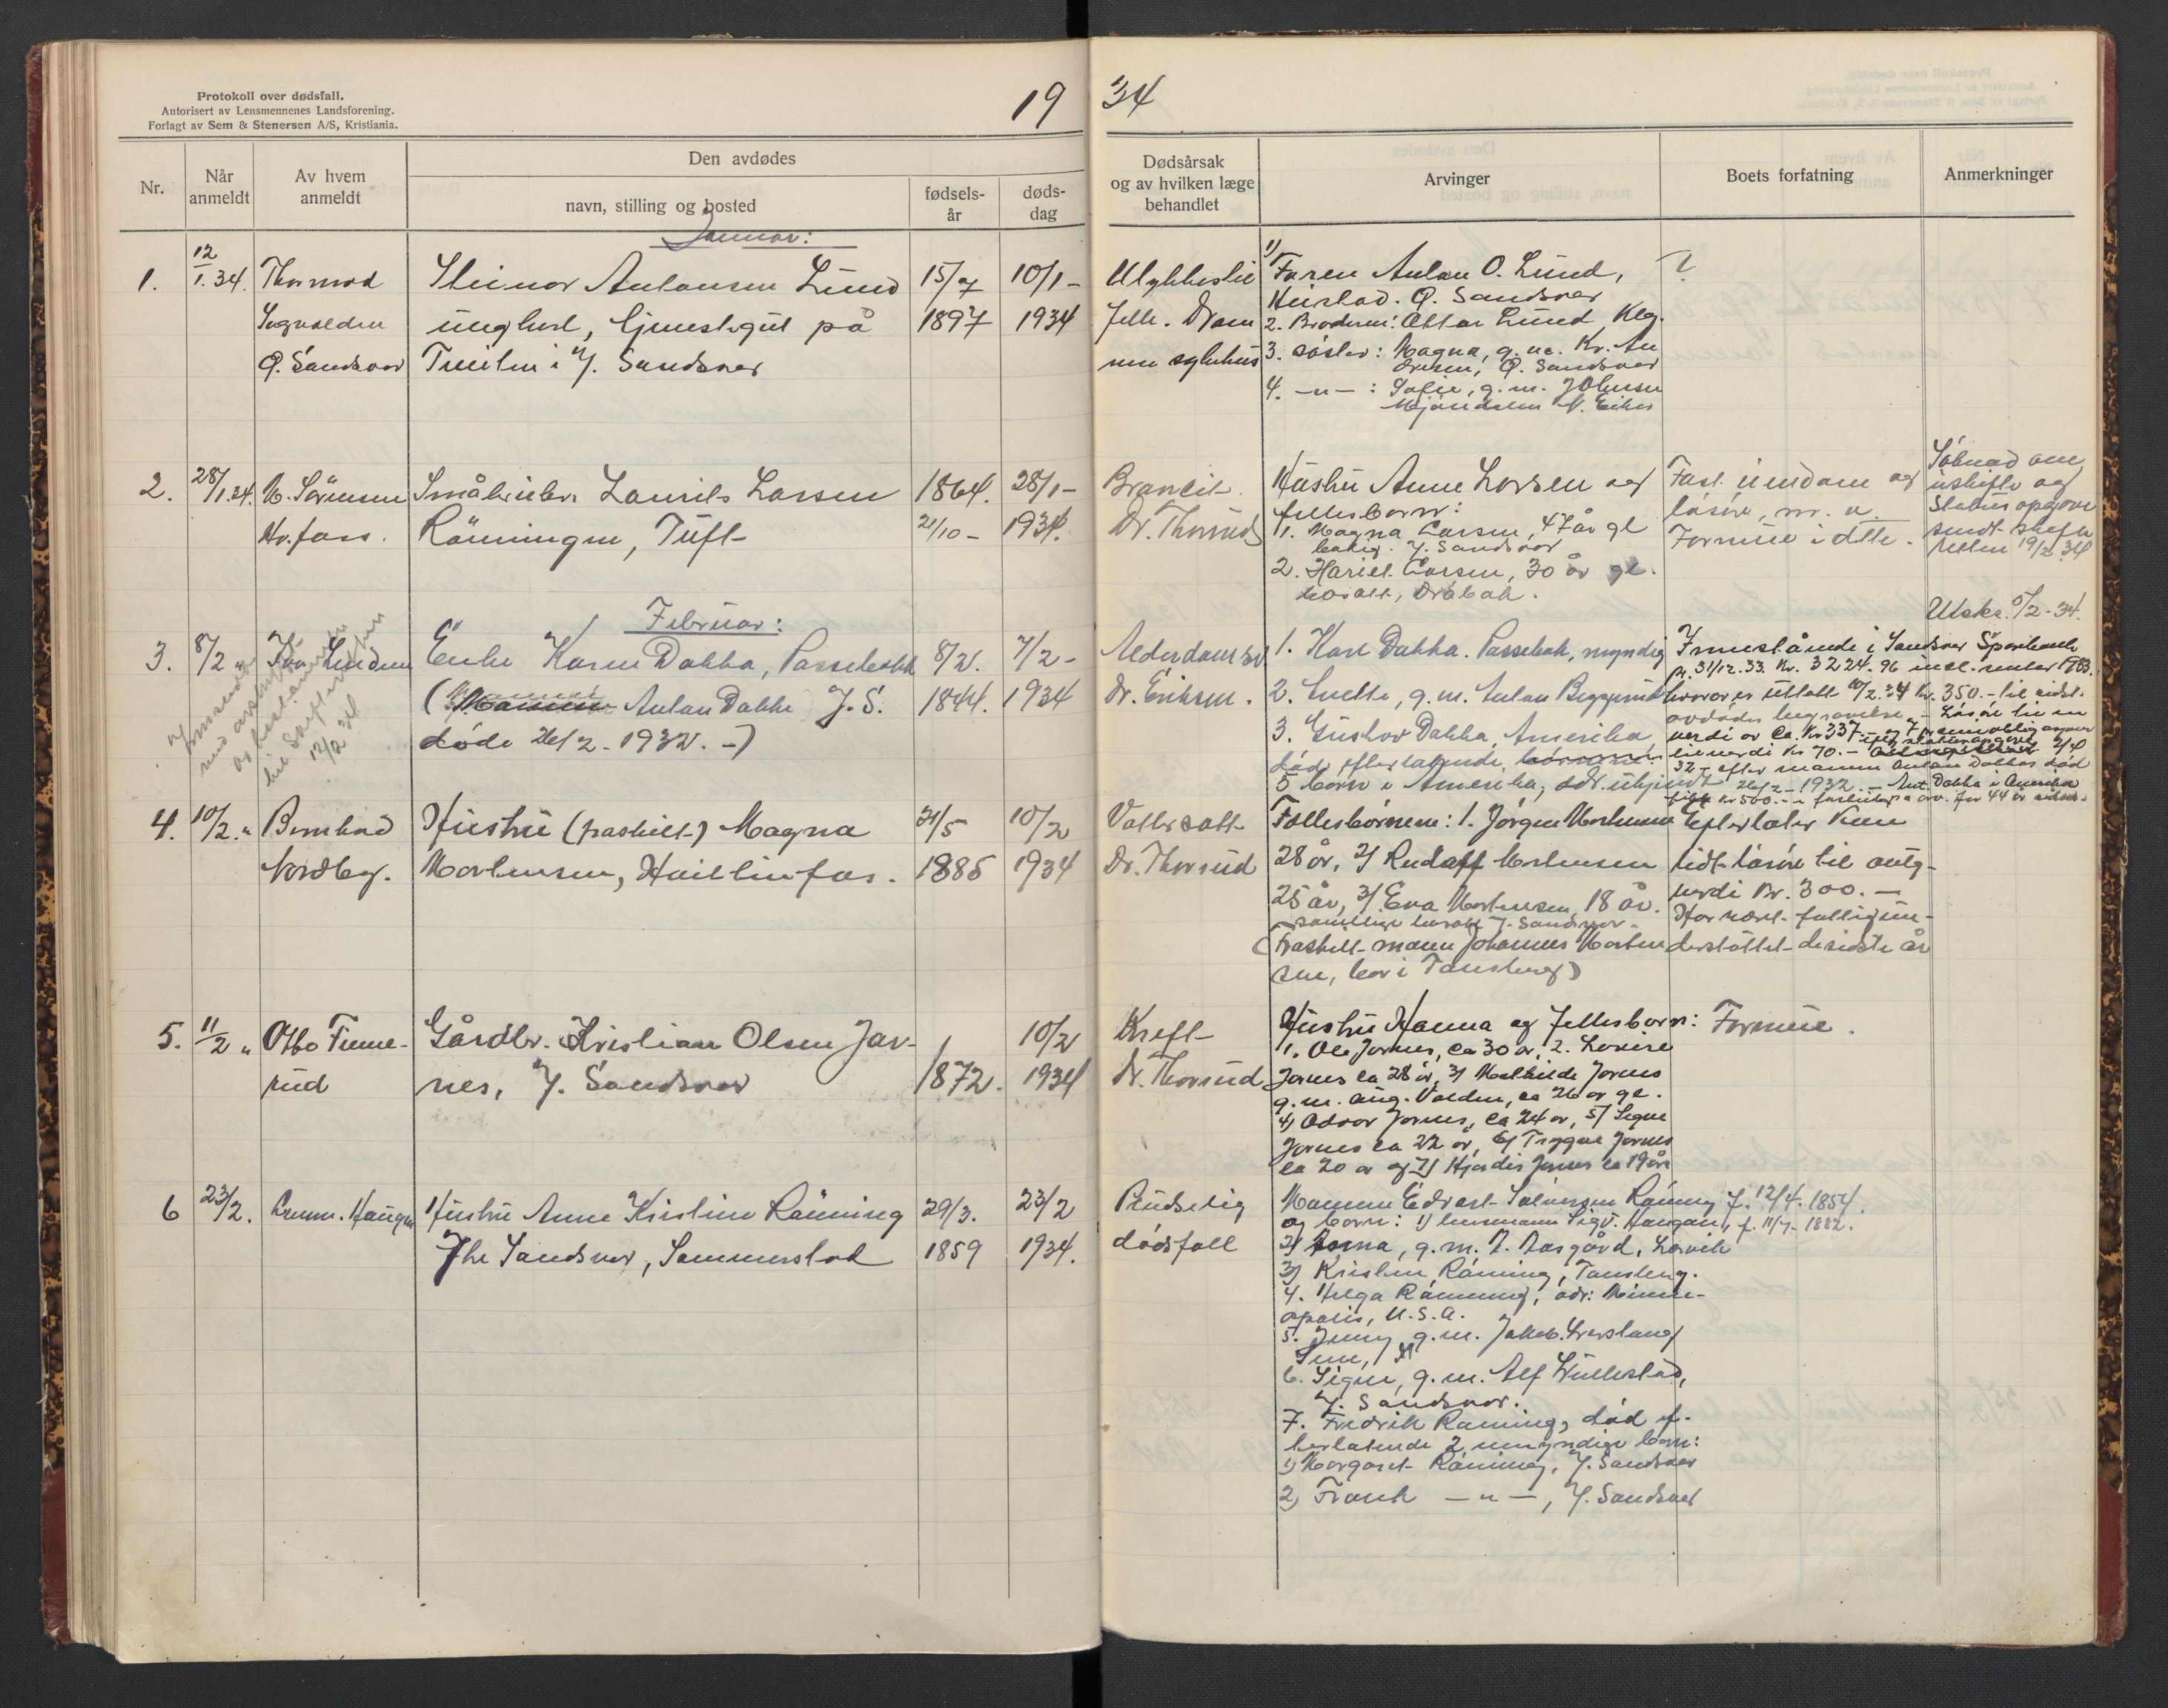 Protokoll over dødsfall.
Autorisert av Lensmennenes Landsforening.
Forlagt av Sem & Stenersen A/S, Kristiania.
19 34
Nr.
Når anmeldt
Av hvem anmeldt
Den avdødes
navn, stilling og bosted
fødsels-år
døds-dag
Dødsårsak og av hvilken læge behandlet
Arvinger
Boets forfatning
Anmerkninger
Januar:
1.
12/1.34.
Thormod
Ø. Sandsvær
Steinar Antonsen Lund
ungkarl, tjenestegut på
i Y. Sandsvær
15/7
1897
10/1-
1934
Ulykkestil
felle. Dram
men sykehus
1) Faren Anton O. Lund,
Heistad. Ø. Sandsvær
2. Broderen: Ottar Lund, Kbg.
3. søster: Magna, g.m. Kr. An
dresen, Ø. Sandsvær
4. -"- : Sofie, g.m. Johnsen
Mjøndalen N. Eiker
?
2.
28/1.34.
M. Sørensen
Hv.foss.
Småbruker Laurits Larsen
Rønningen, Tuft
1864.
21/10-
28/1-
1934.
Brancit.
Dr. Thorrud
Hustru Anne Larsen og
fellesbarn:
1. Magna Larsen, 47 år gl
Y. Sandsvær
2. Larsen, 30 år gl.
bosatt, Drøbak.
Fast eiendom og
løsøre, m. v.
Formue i dette.
Søknad om
uskifte og
Status opgave
sendt skifte
retten 19/2 34
Februar:
Utskr. /2-34.
3.
8/2 "
Linden
Innsendt
til Skifteretten
12/2 34
Enke Karen Dakka, Passebekk
( Anton Dakka Y. S.
døde 26/2-1932.-)
8/2.
1844.
7/2-
1934
Alderdom sv
Dr. Eriksen.
1. Karl Dakka. Passebek, myndig
2. g.m. Anton Beggerud
3. Gustav Dakka, Amerika
død, efterlatende
5 barn i Amerika, adr. ukjendt
Innestående i Sandsvær Sparebank
pr. 31/12.33. Kr. 3224.96 incl. renter 1933.
hvorav er uttatt 10/2.34 Kr. 350.- til sidst.
avdødes begravelse - Løsøre til en
verdi av ca. Kr 337.-
til verdi Kr 70.-
32 - efter mannen Anton Dakkas død
26/2-1932. - Ant. Dakka i Amerika
fikk Kr 500.- i forskudd på arv. for 44 år siden.
4.
10/2. "
Bernhard
Nordbg.
Hustru (fraskilt) Magna
Mortensen, Hvittinfoss.
31/5
1885
10/2
1934
Vattersott
Dr. Thorrud
Fellesbørnene: 1. Jørgen Mortensen
28 år, 2/ Rudolf Mortensen
25 år, 3/. Eva Mortensen 18 år.
samtlige bosatt Y. Sandsvær.
(Fraskilt mann Johannes Morten
sen, bor i Tønsberg)
Efterlater kun
lidt løsøre til antg-
verdi Kr. 300.-
Har vært fattigun-
derstøttet de siste år
5.
11/2 "
Otto Finne-
rud
Gårdbr. Kristian Olsen Jar-
nes, Y. Sandsvær
1872.
10/2
1934
Kreft
Dr. Thorrud
Hustru Hanna og fellesbarn:
1. Ole Jarnes, ca 30 år, 2. Lovise
Jarnes ca 28 år, 3/ Mathilde Jarnes
g.m. Aug. Volden, ca 26 år gl.
4) Odvar Jarnes, ca 24 år, 5/ Signe
Jarnes ca 22 år, 6/ Trygve Jarnes
ca 20 år og 7/ Hjørdis Jarnes ca 19 år
Formue.
6
23/2.
Lensm. Haugan
Hustru Anne Kirstine Rønning
Ytre Sandsvær, Sommerstad
29/3.
1859
23/2
1934.
Pludselig
dødsfall
Mannen Edvart Salvesen Rønning f. 12/4. 1854.
og barn: 1/ lensmann Sigv. Haugan, f. 11/7-1882.
2/ Anna, g.m. Aasgård, Larvik
3) Kristen Rønning, Tønsberg.
4. Helga Rønning, adr: Minne-
apolis, U.S.A.
5. Jenny g.m. Jakob
6. Signe, g.m. Alf Wullestad,
Y. Sandsvær.
7. Fredrik Rønning, død ef-
terlatende 2 umyndige barn:
1) Margaret Rønning, Y. Sandsvær
2) Frank -"-, Y. Sandsvær